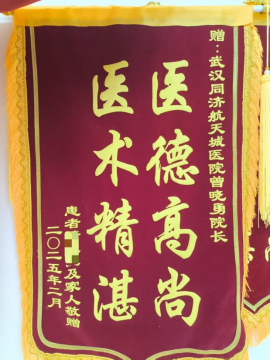 赠：武汉同济航天城医院曾晓勇院长
医德高尚
医术精湛
患者及家人敬赠
二〇二五年二月